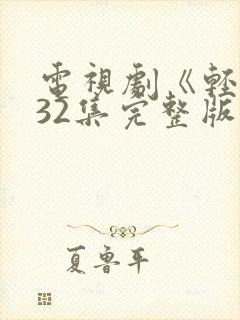 電視劇《輕
32集完整版
夏魯平